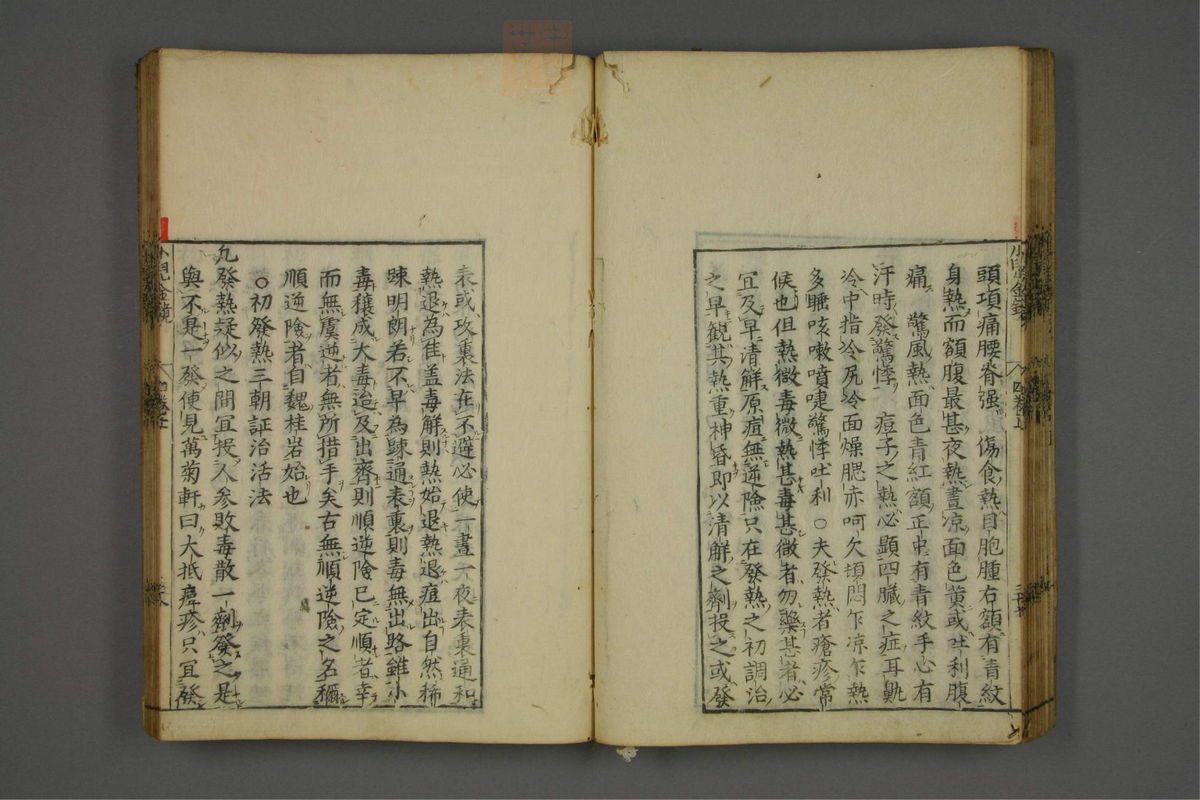 頭項痛腰脊强　傷食熱目胞腫右額有青紋
身熱而額腹最甚夜熱晝凉面色黄或吐利腹
痛　驚風熱面色青紅額正中有青紋手心有
汗時發驚悸　痘子之熱必顕四臟之症耳𩩲
冷中指冷尻冷面燥腮赤呵欠頃悶乍凉乍熱
多睡咳嗽噴嚏驚悸吐利○夫發熱者瘡疹常
候也但熱微毒微熱甚毒甚微者勿藥甚者必
冝及早清解原痘無逆險只在發熱之初調治
之早觀其熱重神昏即以清解之劑投之或發
表或攻裏法在不避必使一晝一夜表裏通和
熱退為佳盖毒解則熱始退熱退痘出自然稀
疎明朗若不早為踈通表裏則毒無出路雖小
毒穰成大毒迨及出齊則順逆險已定順者幸
而無虞逆者無所措手矣古無順逆險之名稱
順逆險者自魏桂岩始也
○初發熱三朝証治活法
凢發熱疑似之間冝投人參敗毒散一劑發之是
與不是一發便見萬菊軒曰大抵痺疹只冝發
小兒
四卷上